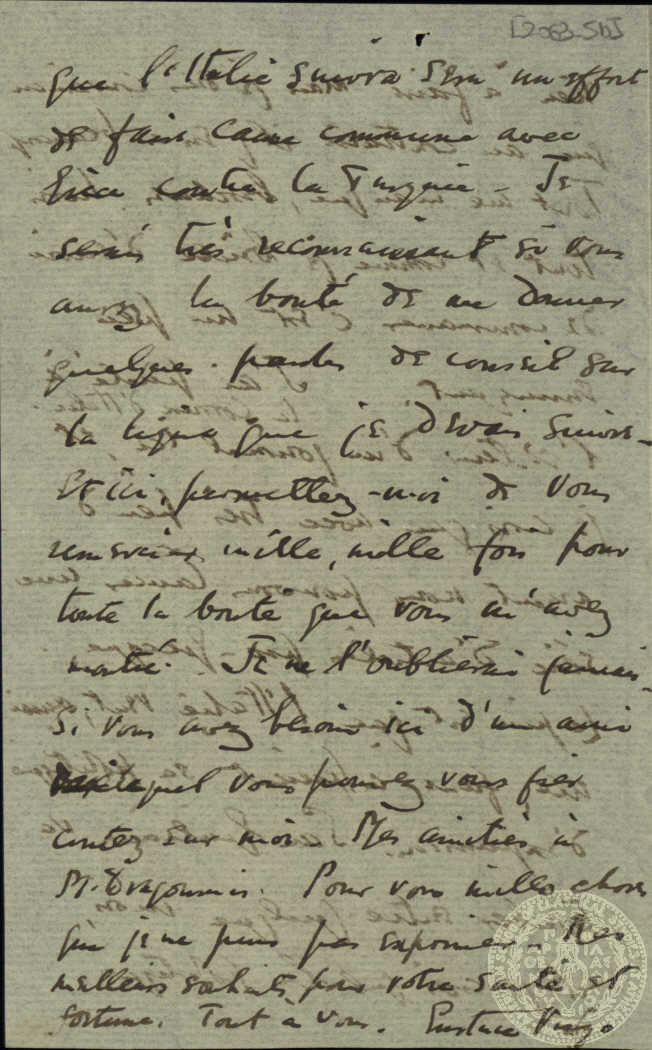 que l'Italie suivra sera un effort
de faire cause commune avec
Grèce contre la Turquie – Je
serais très reconnaissant si vous
aurez la bonté de me donner
quelques paroles de conseil sur
la ligne que je devais suivre –
Et ici, permettez-moi de vous
remercier mille, mille fois pour
toute la bonte que vous m'avez
montré. Je ne l'oublierai jamais –
Si vous avez besoin ici d'un ami
auquel vous pouvez vous fier
contez sur moi. Mes amitiés à
M. Dragoumis. Pour vous milles choses
que je ne puis pas exprimer – Mes
meilleurs souhaits pour votre santé et
fortune. Tout a vous. Eustace